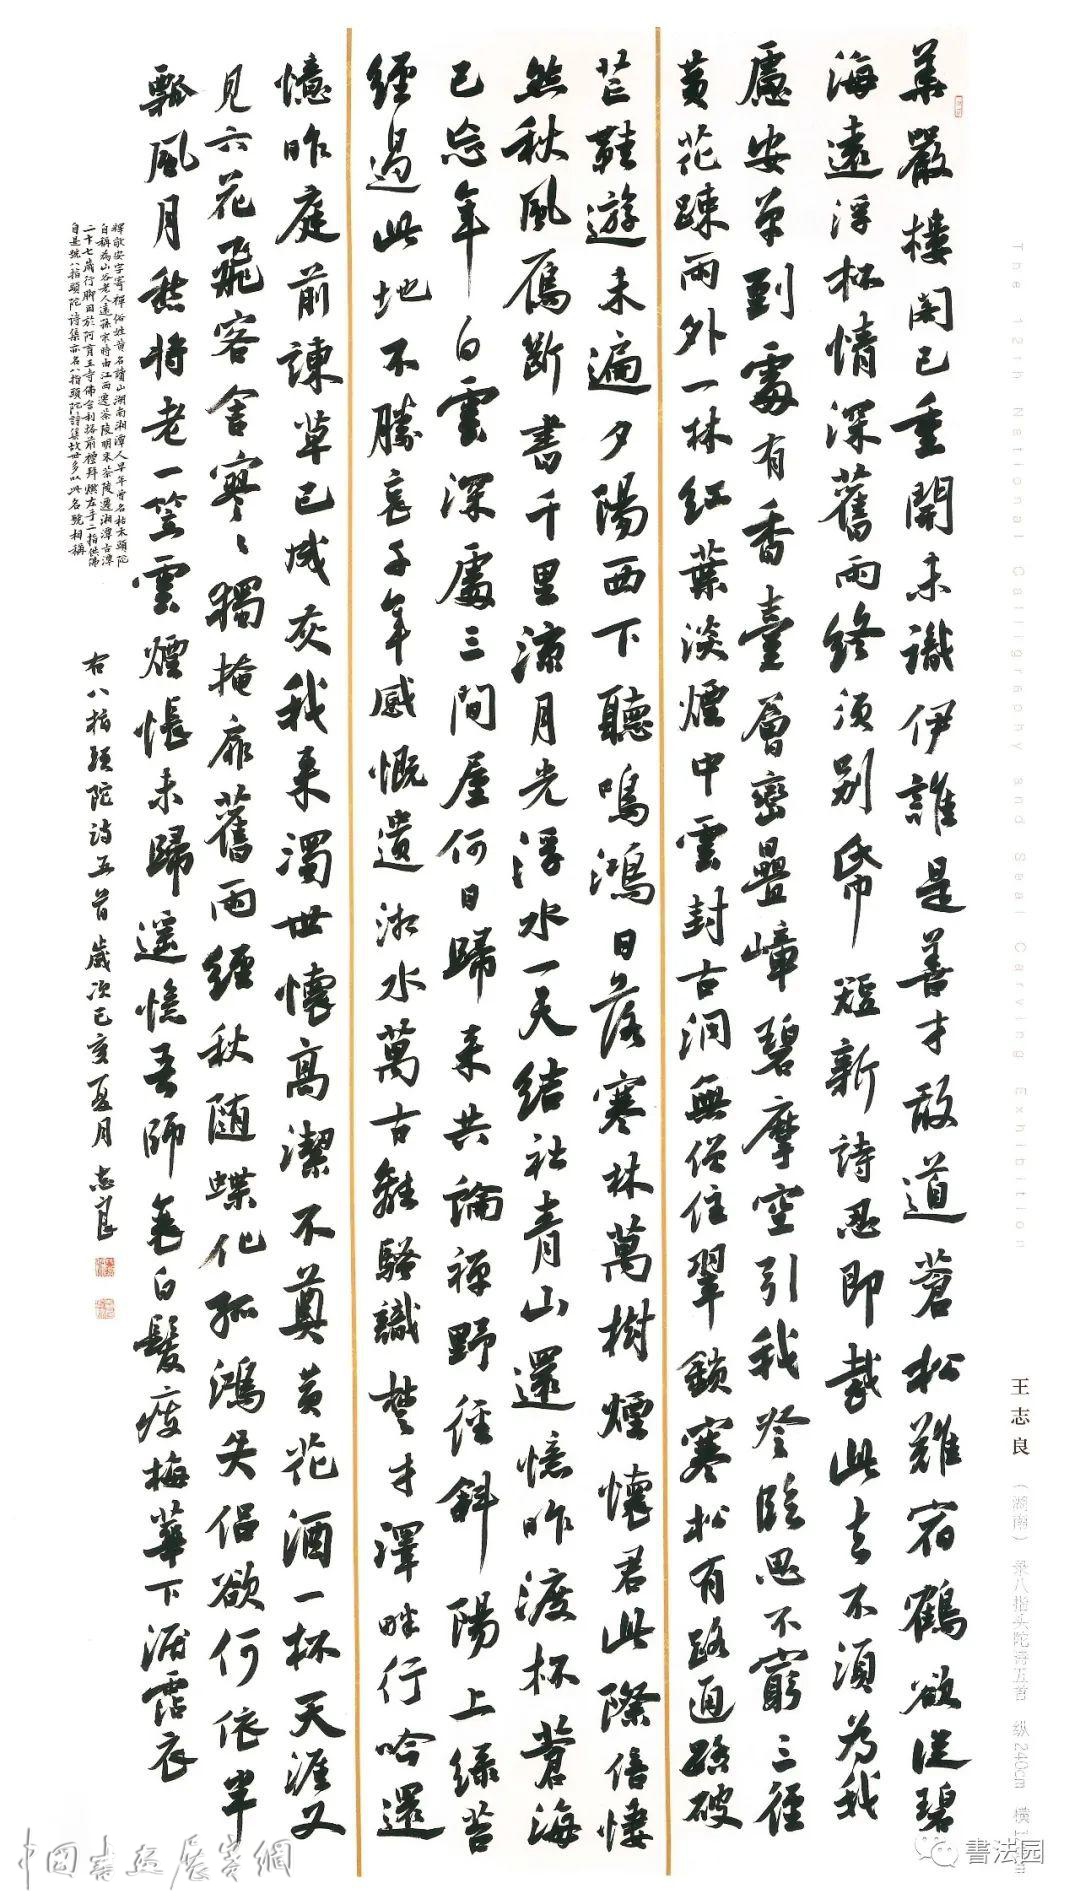 華嚴樓閣已重開未識伊誰是善才敢道蒼松難宿鶴欲從碧
海遠浮杯情深舊雨終須別紙短新詩忍即裁此去不須為我
慮安單到處有香臺層巒疊嶂碧摩空引我登臨思不窮三徑
黃花疎雨外一林紅葉淡煙中雲封古洞無僧住翠鎖寒松有路通踏破
芒鞋遊未遍夕陽西下聽鳴鴻日落寒林萬樹煙懷君此際倍悽
然秋風雁斷書千里涼月光浮水一天結社青山還憶昨渡杯蒼海
已忘年白雲深處三間屋何日歸來共論禪野徑斜陽上綠苔
經過此地不勝哀千年感慨遺湘水萬古離騷識楚才澤畔行吟還
憶昨庭前諫草已成灰我來濁世懷高潔不奠黃花酒一杯天涯又
見六花飛客舍寥寥獨掩扉舊雨經秋隨蝶化孤鴻失侶欲何依半
瓢風月愁將老一笠雲煙悵未歸遙憶吾師垂白髮痩梅華下淚霑衣
釋敬安字寄禪俗姓黃名讀山湖南湘潭人早年曾名枯木頭陀
自稱為山谷老人遠孫宋時由江西遷茶陵明末茶陵遷湘潭古潭
二十七歲行腳因於阿育王寺佛舍利塔前禮拜燃左手二指供佛
自是號八指頭陀詩集亦名八指頭陀詩集故世多以此名號相稱
右八指頭陀詩五首歲次己亥夏月志良
The 12th National Calligraphy and Seal Carving Exhibition
王志良（湖南）录八指头陀诗五首 纵240cm 横
中國書法展賽網
書法园